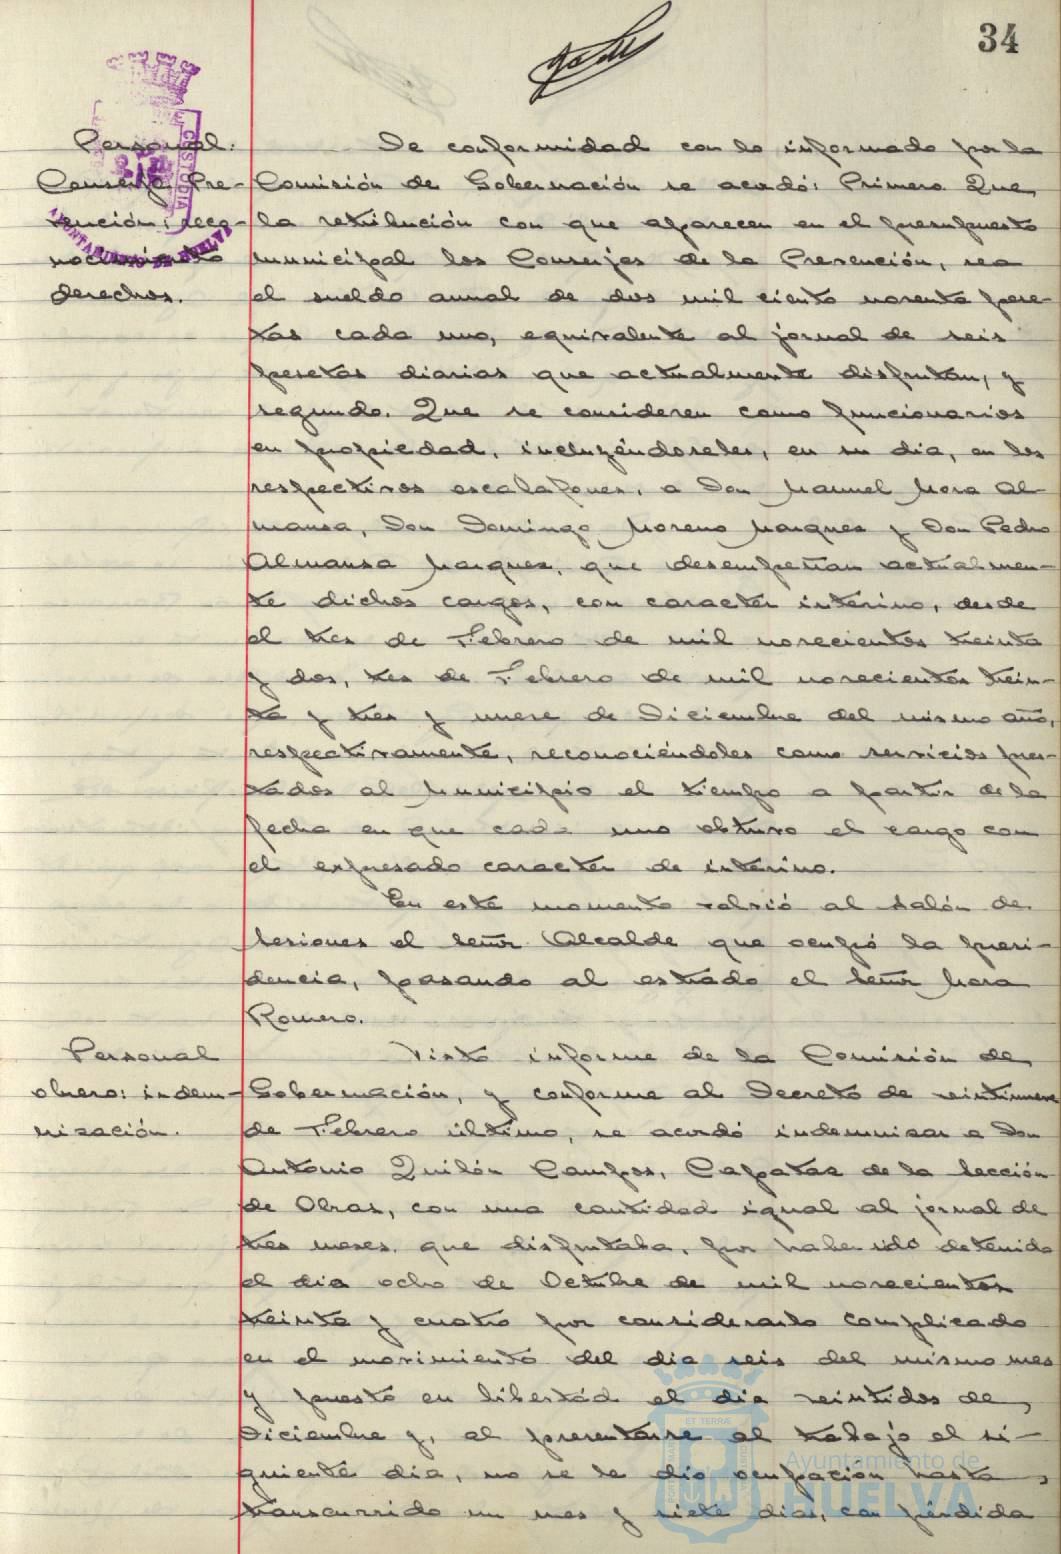 34
Personal:
Conserjes Pre-
vención; reco-
nocimiento
derechos.
De conformidad con lo informado por la
Comisión de Gobernación se acordó: Primero. Que,
la retribución con que aparecen en el presupuesto
municipal los Conserjes de la Prevención, sea
el sueldo anual de dos mil ciento noventa pese-
tas cada uno, equivalente al jornal de seis
pesetas diarias que actualmente disfrutan, y
segundo. Que se consideren como funcionarios
en propiedad, incluyéndoseles, en su dia, en los
respectivos escalafones, a Don Manuel Mora Al-
mansa, Don Domingo Moreno Marques y Don Pedro
Almansa Marques, que desempeñan actualmen-
te dichos cargos, con caracter interino, desde
el tres de Febrero de mil novecientos treinta
y dos, tres de Febrero de mil novecientos trein-
ta y tres y nueve de Diciembre del mismo año,
respectivamente, reconociéndoles como servicios pres-
tados al Municipio el tiempo a partir de la
fecha en que cada uno obtuvo el cargo con
el expresado caracter de interino.
En este momento volvió al Salón de
Sesiones el Señor Alcalde que ocupó la presi-
dencia, pasando al estrado el Señor Mora
Romero.
Personal
obrero: indem-
nización.
Visto informe de la Comisión de
Gobernación, y conforme al Decreto de veintinueve
de Febrero último, se acordó indemnizar a Don
Antonio Quilón Campos, Capataz de la Sección
de Obras, con una cantidad igual al jornal de
tres meses que disfrutaba, por haber sido detenido
el dia ocho de Octubre de mil novecientos
treinta y cuatro por considerarlo complicado
en el movimiento del dia seis del mismo mes
y puesto en libertad el dia veintidos de
Diciembre y, al presentarse al trabajo el si-
guiente dia, no se le dio ocupación hasta
transcurrido un mes y siete dias, con pérdida
CUSTODIA
AYUNTAMIENTO DE HUELVA
Ayuntamiento de
HUELVA